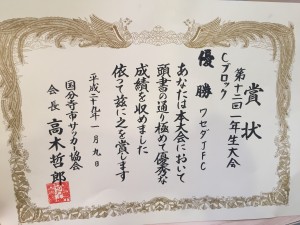 賞状
第十一回 一年生大会
Cブロック
優勝 ワセダJFC
あなたは本大会において
頭書の通り極めて優秀な
成績を収めました
依って茲に之を賞します
平成二十九年一月九日
国分寺市サッカー協会
会長 高木哲郎